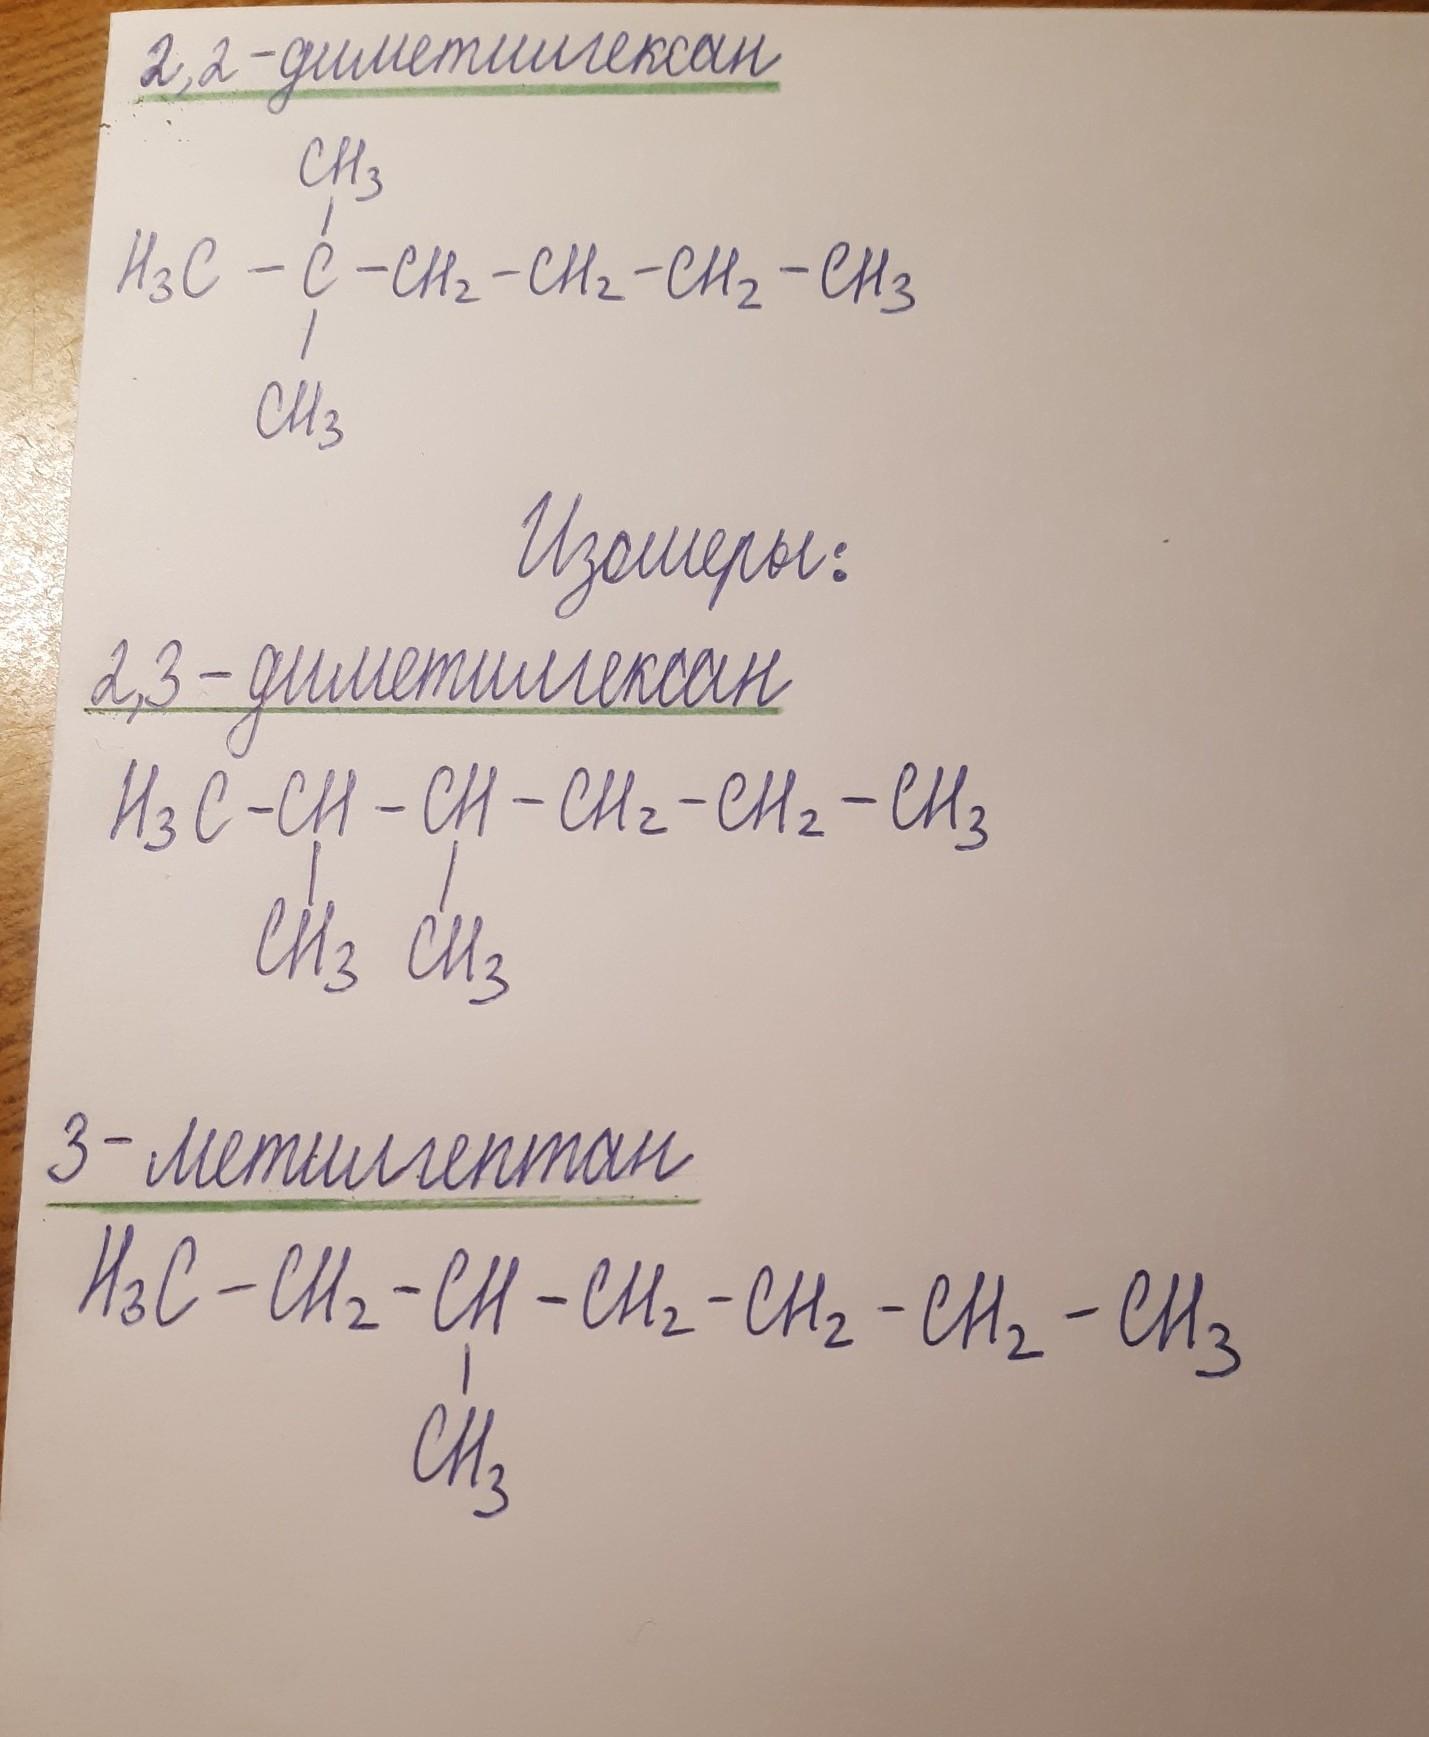 2,2-диметилгексан
CH3
H3C - C - CH2 - CH2 - CH2 - CH3
CH3
Изомеры:
2,3-диметилгексан
H3C - CH - CH - CH2 - CH2 - CH3
CH3 CH3
3-метилгептан
H3C - CH2 - CH - CH2 - CH2 - CH2 - CH3
CH3